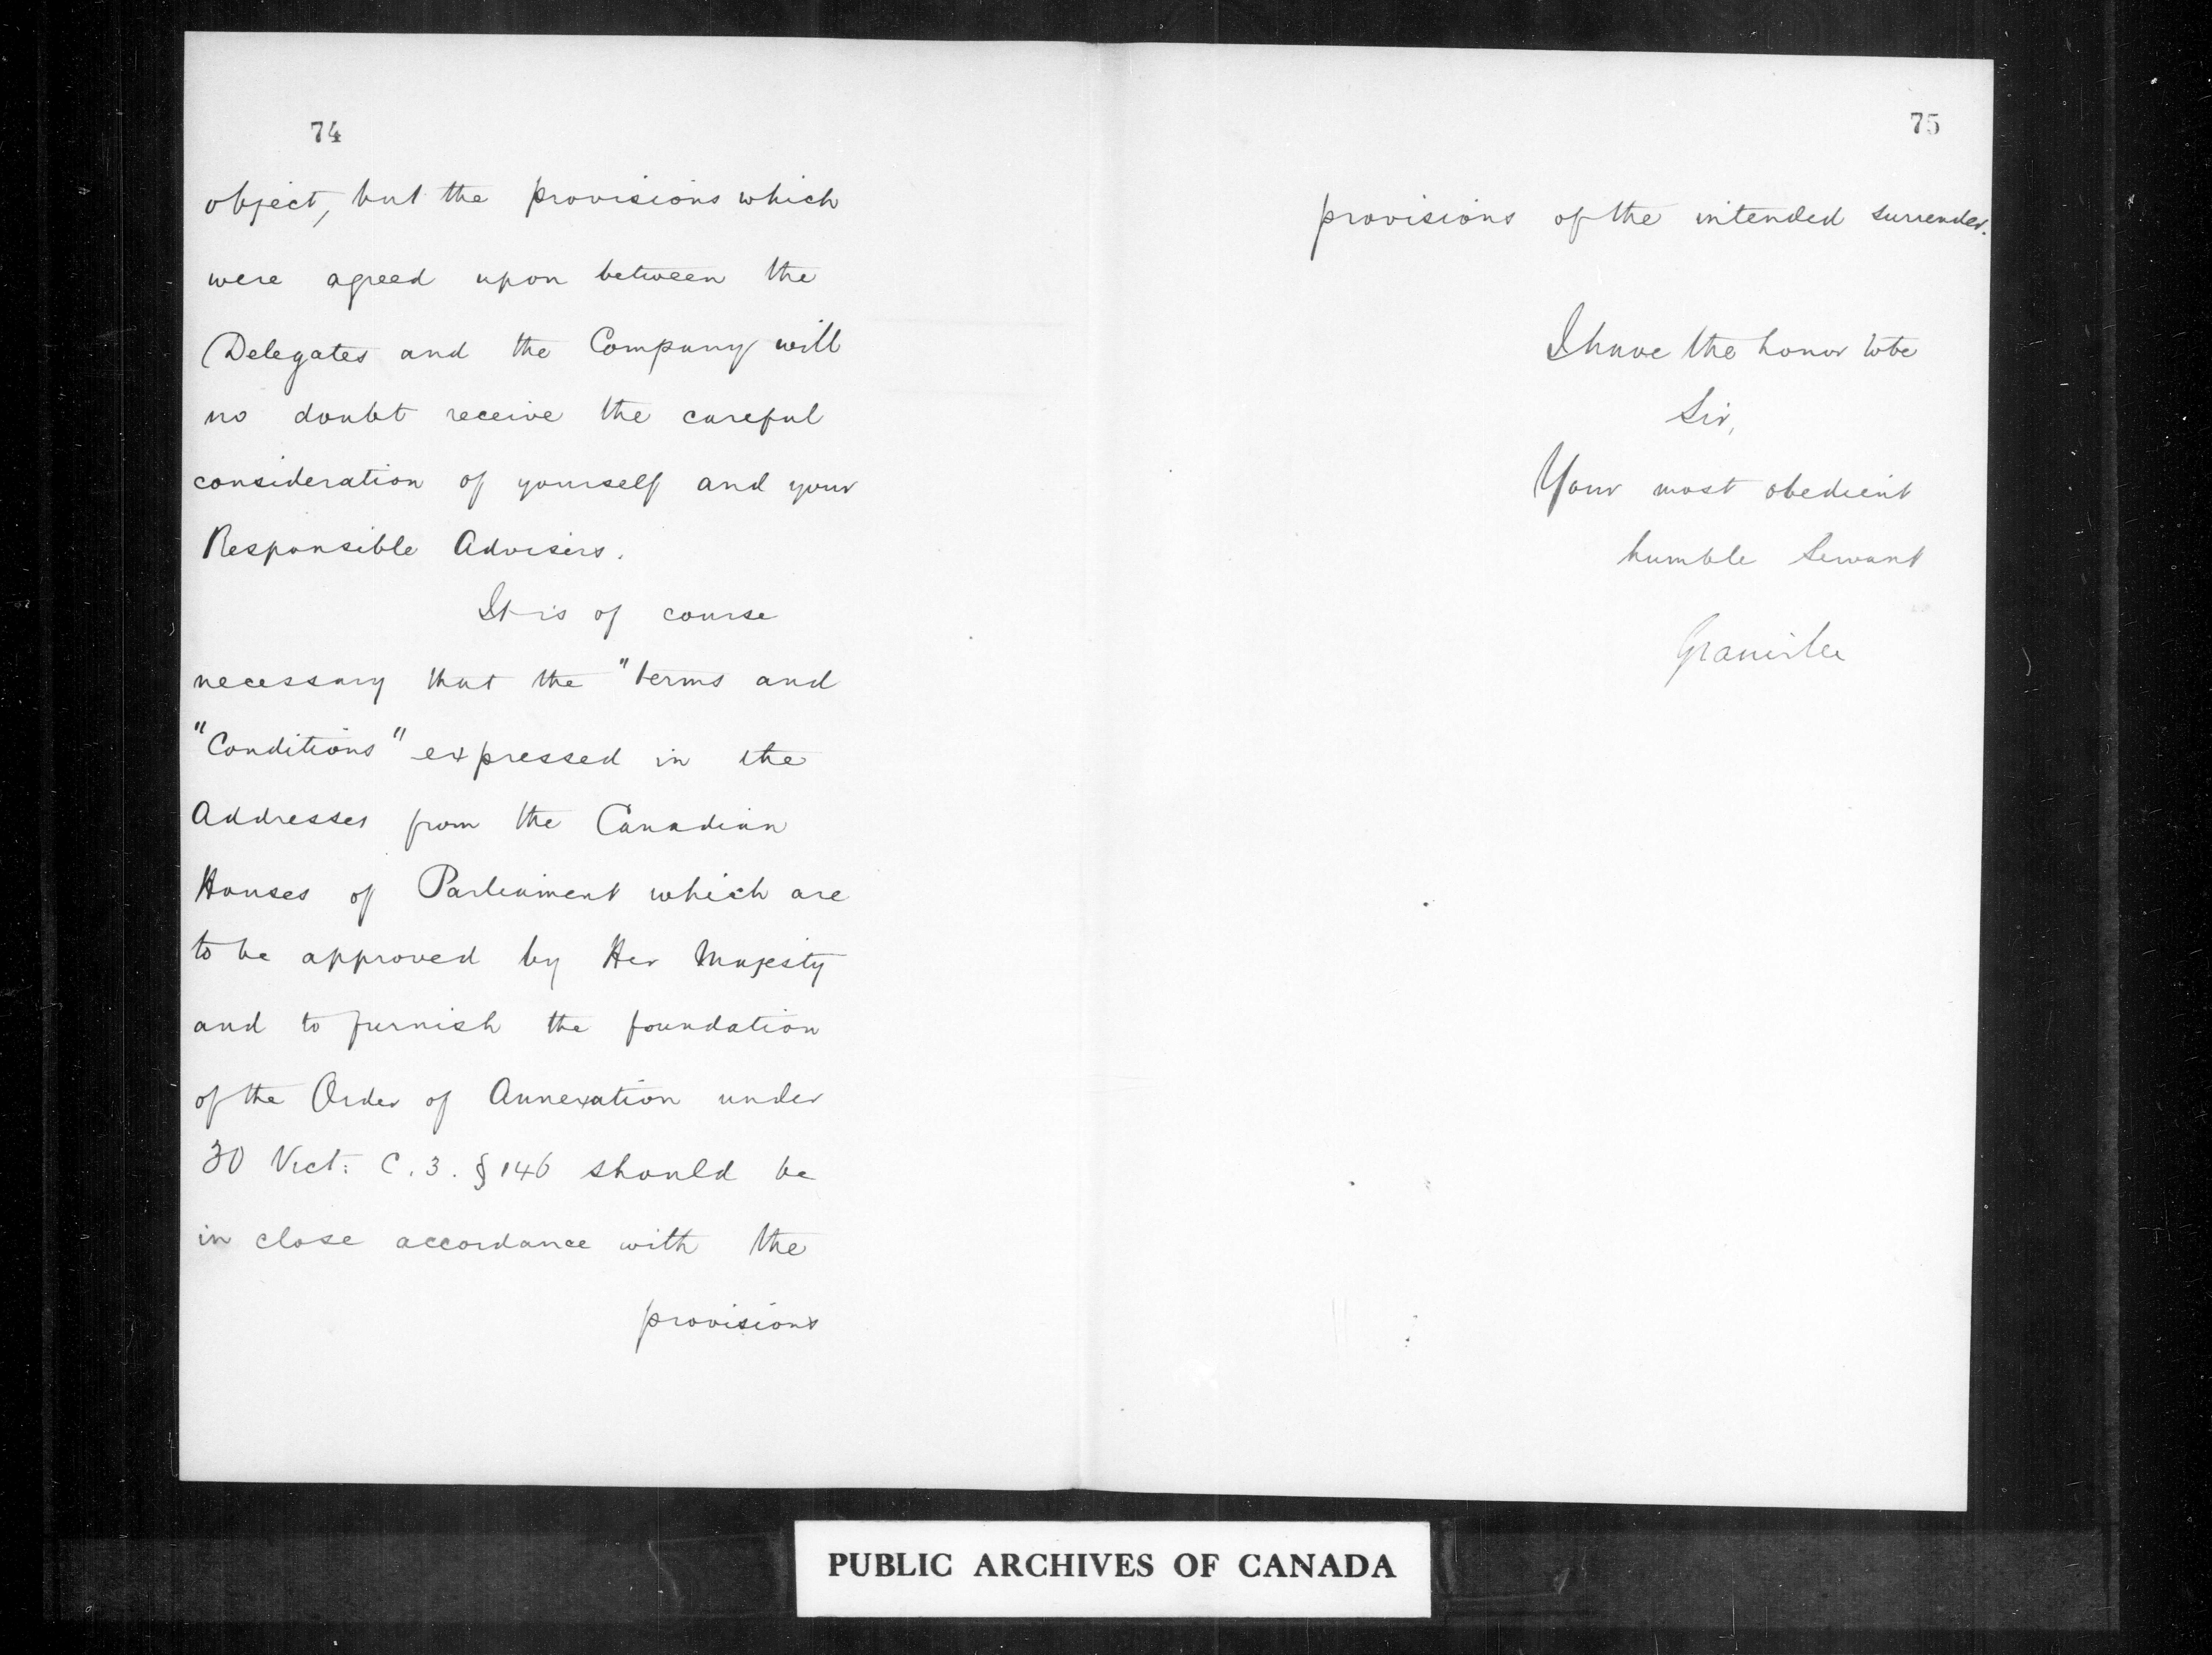 74
object, but the provisions which
were agreed upon between the
Delegates and the Company will
no doubt receive the careful
consideration of yourself and your
Responsible Advisers.
It is of course
necessary that the "terms and
"Conditions" expressed in the
Addresses from the Canadian
Houses of Parliament which are
to be approved by Her Majesty
and to furnish the foundation
of the Order of Annexation under
30 Vict: C. 3. § 146 should be
in close accordance with the
provisions
75
provisions of the intended surrender.
I have the honor to be
Sir,
Your most obedient
humble Servant
Granville
PUBLIC ARCHIVES OF CANADA